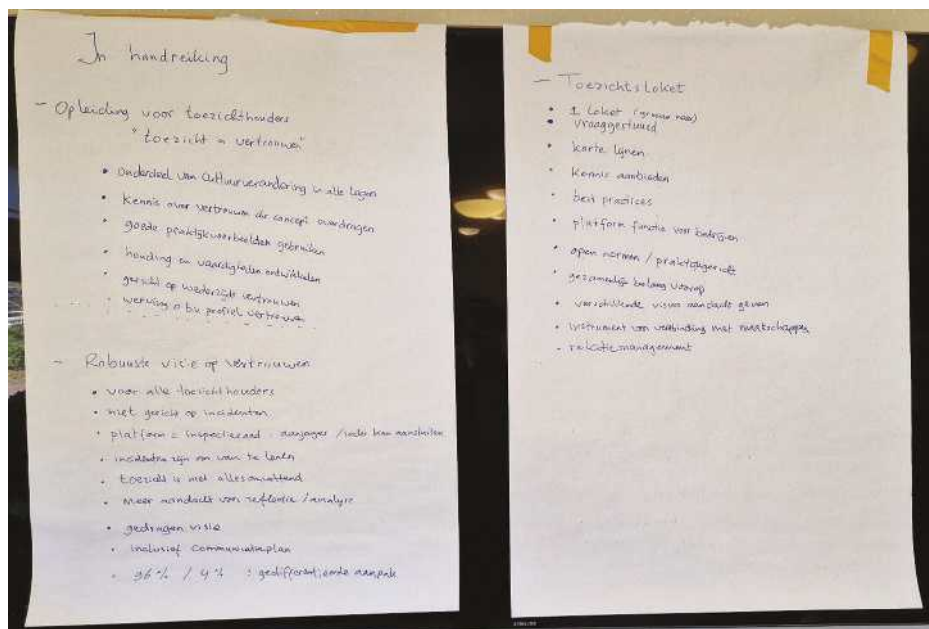 In handreiking
- Opleiding voor toezichthouders
"toezicht in vertrouwen"
• Onderdeel van Cultuurverandering in alle lagen
• Kennis over vertrouwen als concept overdragen
• goede praktijkvoorbeelden gebruiken
• houding en vaardigheden ontwikkelen
• gericht op wederzijds vertrouwen
• werving o.b.v. profiel vertrouwen
- Robuuste visie op vertrouwen
• voor alle toezichthouders
• niet gericht op incidenten
• platform = inspectieraad : aanjager / ieder kan aansluiten
• incidenten zijn om van te leren
• toezicht is niet allesomvattend
• Meer aandacht voor reflectie / analyse
• gedragen visie
• inclusief communicatieplan
• 96% / 4% : gedifferentieerde aanpak
- Toezichtsloket
• 1 Loket
• vraaggestuurd
• korte lijnen
• kennis aanbieden
• best practices
• platform functie voor bedrijven
• open normen / praktijkgericht
• gezamenlijk belang voorop
• verschillende visies aandacht geven
• instrument van verbinding met maatschappij
• relatiemanagement